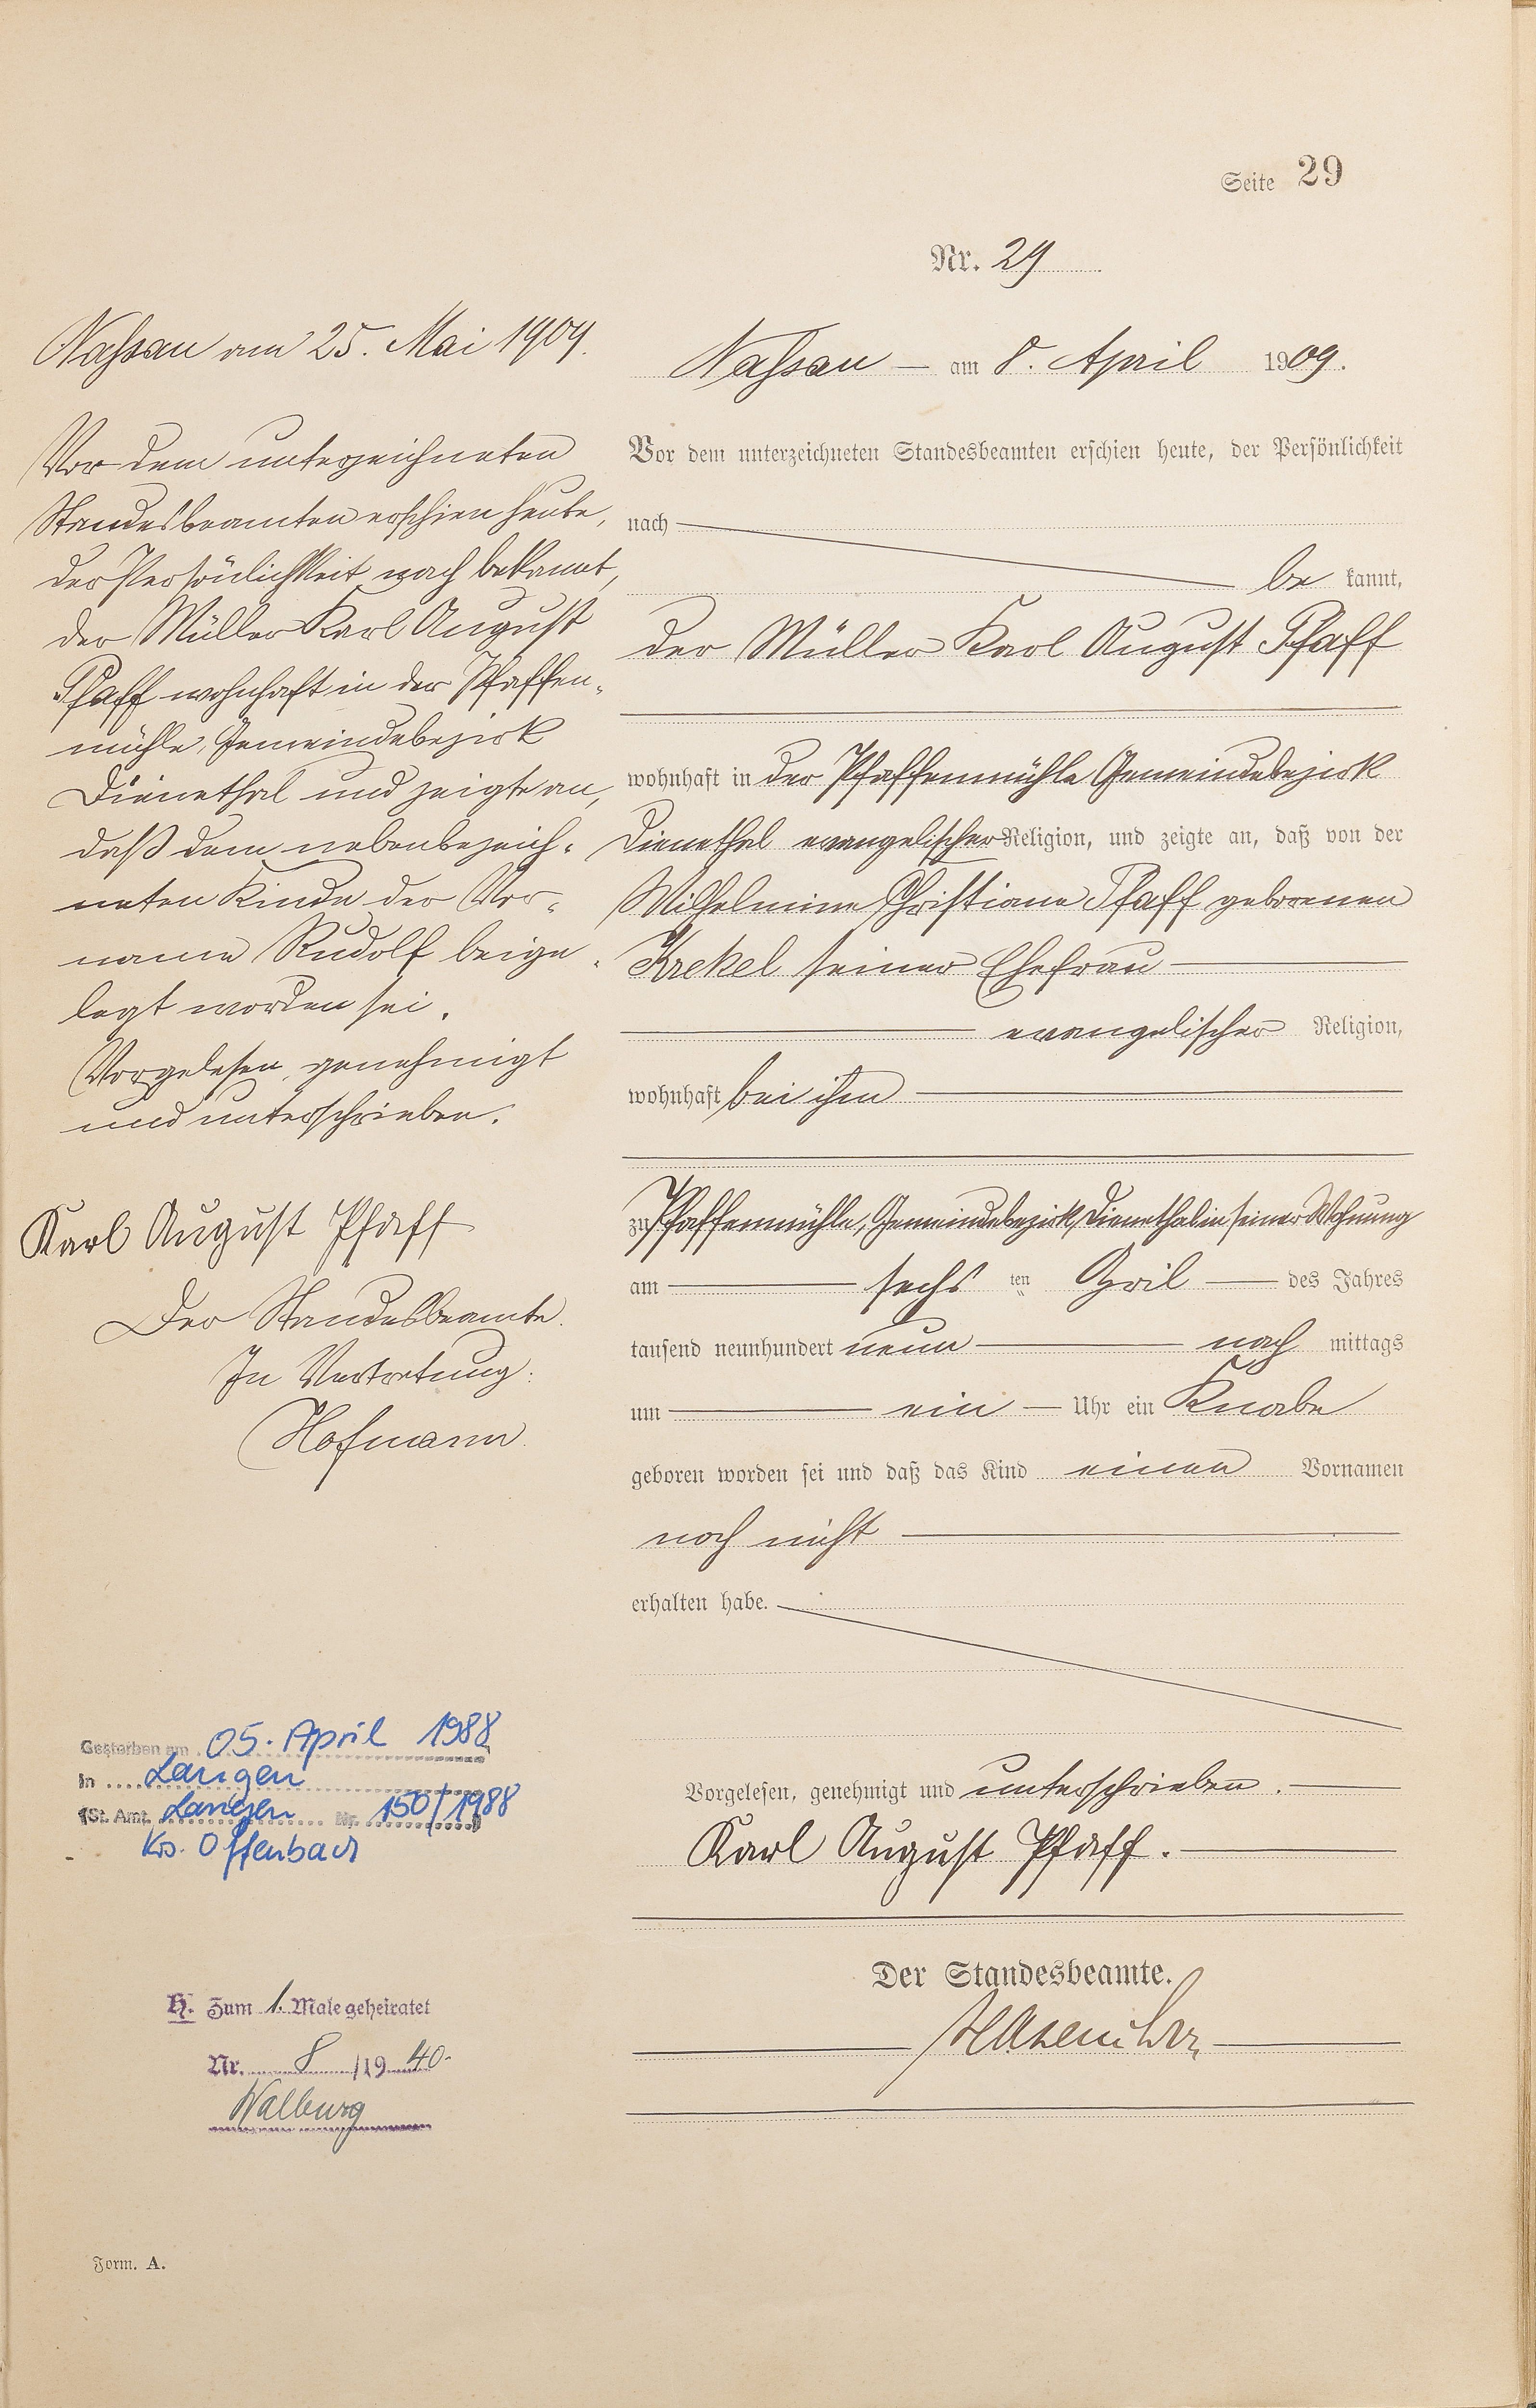 Seite 29
Nr. 29
Nassau am 25. Mai 1909.
Vor dem unterzeichneten
Standesbeamten erschien heute,
der Persönlichkeit nach bekannt,
der Müller Karl August
Pfaff wohnhaft in der Pfaffen-
mühle, Gemeindebezirk
Dienethal und zeigte an,
daß dem nebenbezeich-
neten Kinde der Vor-
name Rudolf beige-
legt worden sei.
Vorgelesen, genehmigt
und unterschrieben.
Karl August Pfaff
Der Standesbeamte.
In Vertretung:
Hofmann
Gestorben am 05. April 1988
in Langen
(St. Amt. Langen Nr. 150/1988)
Krs. Offenbach
H. Zum 1. Male geheiratet
Nr. 8 /1940.
Walburg
Form. A.
Nassau — am 8. April 1909.
Vor dem unterzeichneten Standesbeamten erschien heute, der Persönlichkeit
nach
be kannt,
der Müller Karl August Pfaff
wohnhaft in der Pfaffenmühle Gemeindebezirk
Dienethal evangelischer Religion, und zeigte an, daß von der
Wilhelmine Christiane Pfaff geborenen
Krekel seiner Ehefrau
evangelischer Religion,
wohnhaft bei ihm
zu Pfaffenmühle, Gemeindebezirk Dienethal in seiner Wohnung
am sechs ten April des Jahres
tausend neunhundert neun nach mittags
um ein Uhr ein Knabe
geboren worden sei und daß das Kind einen Vornamen
noch nicht
erhalten habe.
Vorgelesen, genehmigt und unterschrieben.
Karl August Pfaff.
Der Standesbeamte.